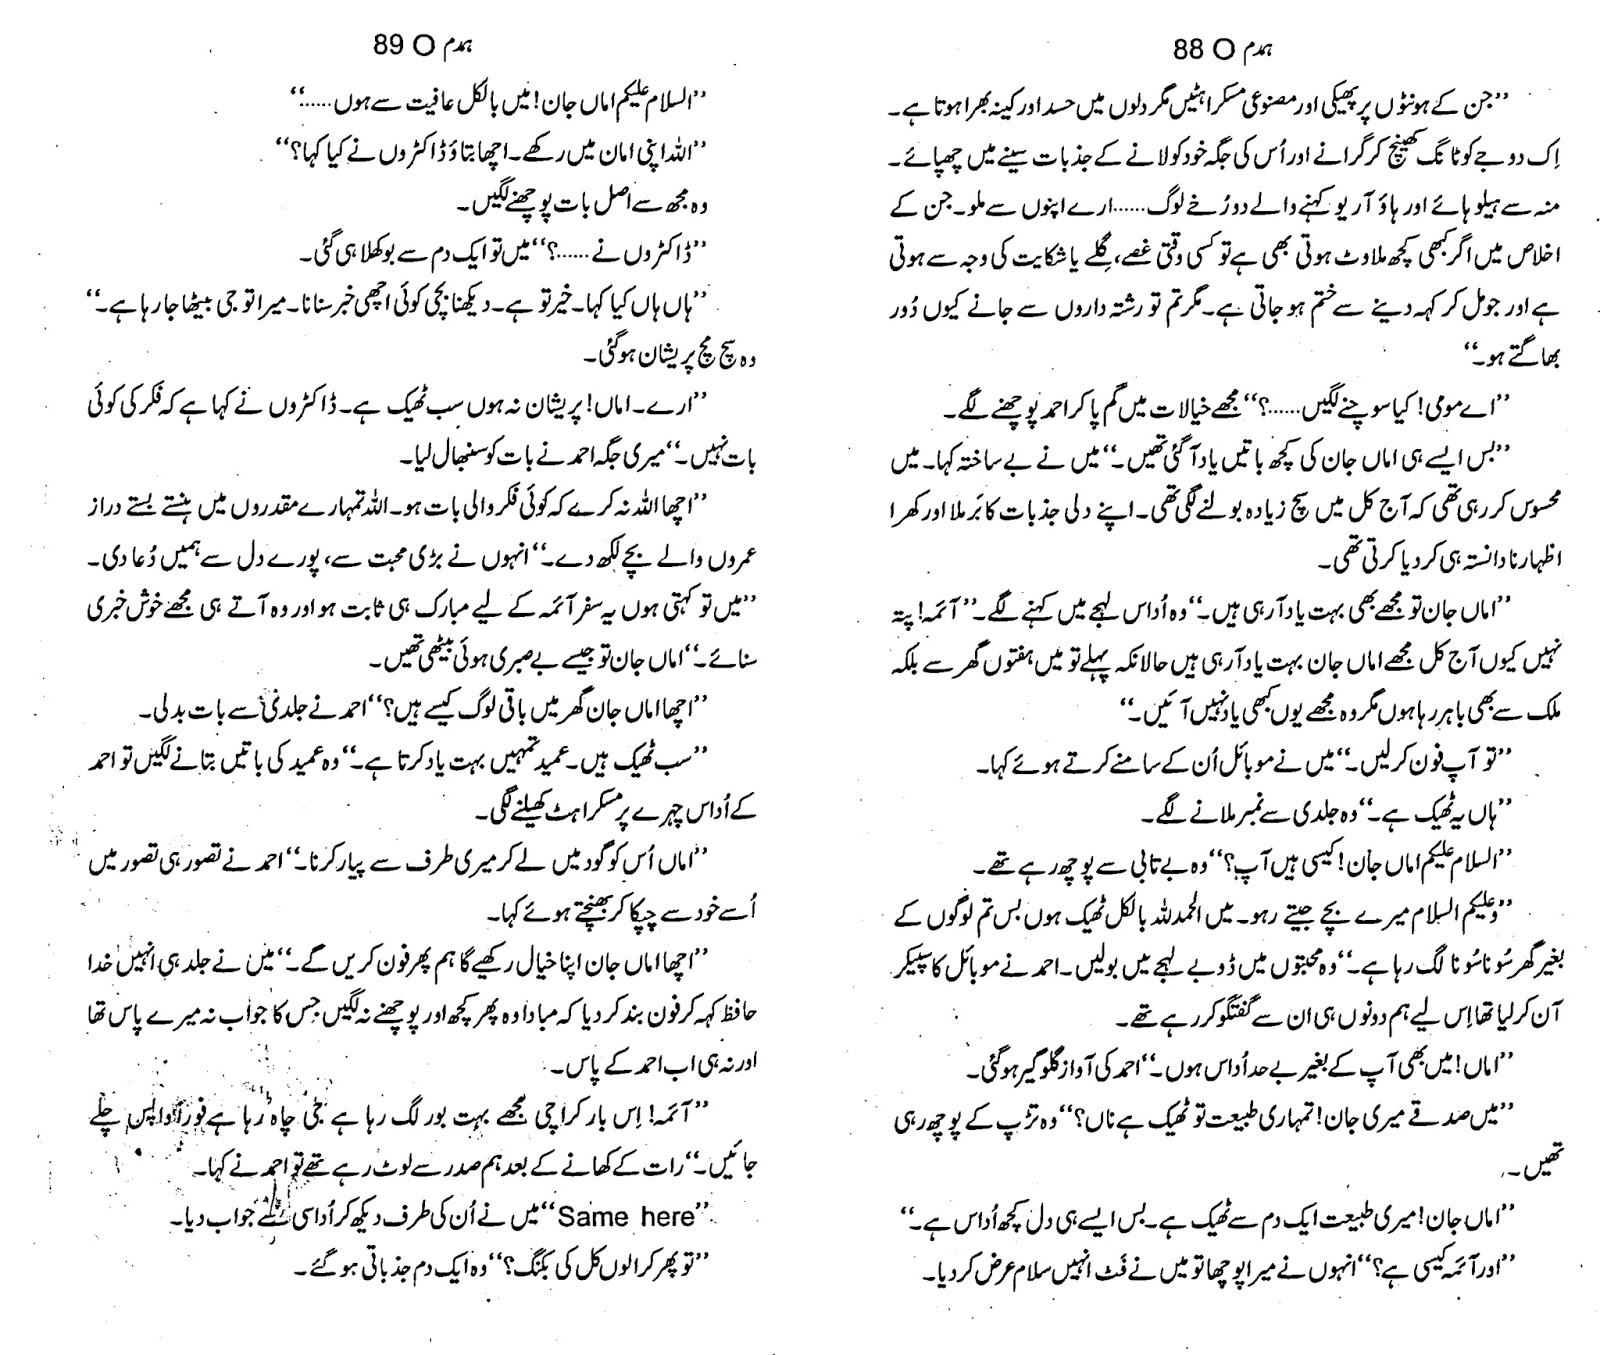 ہمدم O 88
”جن کے ہونٹوں پر پھیکی اور مصنوعی مسکراہٹیں مگر دلوں میں حسد اور کینہ بھرا ہوتا ہے۔
اِک دوجے کو ٹانگ کھینچ کر گرانے اور اُس کی جگہ خود کو لانے کے جذبات سینے میں چھپائے۔
منہ سے ہیلو ہائے اور ہاؤ آر یو کہنے والے دورُخے لوگ......ارے اپنوں سے ملو۔ جن کے
اخلاص میں اگر کبھی کچھ ملاوٹ ہوتی بھی ہے تو کسی وقتی غصے، گِلے یا شکایت کی وجہ سے ہوتی
ہے اور جو مل کر کہہ دینے سے ختم ہو جاتی ہے۔ مگر تم تو رشتہ داروں سے جانے کیوں دُور
بھاگتے ہو۔“
”اے مومی! کیا سوچنے لگیں......؟“ مجھے خیالات میں گم پا کر احمد پوچھنے لگے۔
”بس ایسے ہی اماں جان کی کچھ باتیں یاد آ گئی تھیں۔“ میں نے بے ساختہ کہا۔ میں
محسوس کر رہی تھی کہ آج کل میں سچ زیادہ بولنے لگی تھی۔ اپنے دلی جذبات کا بَرملا اور کھرا
اظہار نادانستہ ہی کر دیا کرتی تھی۔
”اماں جان تو مجھے بھی بہت یاد آ رہی ہیں۔“ وہ اُداس لہجے میں کہنے لگے۔ ”آئمہ! پتہ
نہیں کیوں آج کل مجھے اماں جان بہت یاد آ رہی ہیں حالانکہ پہلے تو میں ہفتوں گھر سے بلکہ
ملک سے بھی باہر رہا ہوں مگر وہ مجھے یوں کبھی یاد نہیں آئیں۔“
”تو آپ فون کر لیں۔“ میں نے موبائل اُن کے سامنے کرتے ہوئے کہا۔
”ہاں یہ ٹھیک ہے۔“ وہ جلدی سے نمبر ملانے لگے۔
”السلام علیکم اماں جان! کیسی ہیں آپ؟“ وہ بے تابی سے پوچھ رہے تھے۔
”وعلیکم السلام میرے بچے جیتے رہو۔ میں الحمدللہ بالکل ٹھیک ہوں بس تم لوگوں کے
بغیر گھر سُونا سُونا لگ رہا ہے۔“ وہ محبتوں میں ڈوبے لہجے میں بولیں۔ احمد نے موبائل کا سپیکر
آن کر لیا تھا اِس لیے ہم دونوں ہی ان سے گفتگو کر رہے تھے۔
”اماں! میں بھی آپ کے بغیر بے حد اُداس ہوں۔“ احمد کی آواز گلوگیر ہو گئی۔
”میں صدقے میری جان! تمہاری طبیعت تو ٹھیک ہے ناں؟“ وہ تڑپ کے پوچھ رہی
تھیں۔
”اماں جان! میری طبیعت ایک دم سے ٹھیک ہے۔ بس ایسے ہی دل کچھ اُداس ہے۔“
”اور آئمہ کیسی ہے؟“ انہوں نے میرا پوچھا تو میں نے فَٹ انہیں سلام عرض کر دیا۔
ہمدم O 89
”السلام علیکم اماں جان! میں بالکل عافیت سے ہوں......“
”اللہ اپنی امان میں رکھے۔ اچھا بتاؤ ڈاکٹروں نے کیا کہا؟“
وہ مجھ سے اصل بات پوچھنے لگیں۔
”ڈاکٹروں نے......؟“ میں تو ایک دم سے بوکھلا ہی گئی۔
”ہاں ہاں کیا کہا۔ خیر تو ہے۔ دیکھنا بچی کوئی اچھی خبر سنانا۔ میرا تو جی بیٹھا جا رہا ہے۔“
وہ سچ مچ پریشان ہو گئی۔
”ارے۔ اماں! پریشان نہ ہوں سب ٹھیک ہے۔ ڈاکٹروں نے کہا ہے کہ فکر کی کوئی
بات نہیں۔“ میری جگہ احمد نے بات کو سنبھال لیا۔
”اچھا اللہ نہ کرے کہ کوئی فکر والی بات ہو۔ اللہ تمہارے مقدروں میں ہنستے بستے دراز
عمروں والے بچے لکھ دے۔“ انہوں نے بڑی محبت سے، پورے دل سے ہمیں دُعا دی۔
”میں تو کہتی ہوں یہ سفر آئمہ کے لیے مبارک ہی ثابت ہو اور وہ آتے ہی مجھے خوش خبری
سنائے۔“ اماں جان تو جیسے بے صبری ہوئی بیٹھی تھیں۔
”اچھا اماں جان گھر میں باقی لوگ کیسے ہیں؟“ احمد نے جلدی سے بات بدلی۔
”سب ٹھیک ہیں۔ عمید تمہیں بہت یاد کرتا ہے۔“ وہ عمید کی باتیں بتانے لگیں تو احمد
کے اُداس چہرے پر مسکراہٹ کھیلنے لگی۔
”اماں اُس کو گود میں لے کر میری طرف سے پیار کرنا۔“ احمد نے تصور ہی تصور میں
اُسے خود سے چپکا کر بھینچتے ہوئے کہا۔
”اچھا اماں جان اپنا خیال رکھیے گا ہم پھر فون کریں گے۔“ میں نے جلد ہی انہیں خدا
حافظ کہہ کر فون بند کر دیا کہ مبادا وہ پھر کچھ اور پوچھنے نہ لگیں جس کا جواب نہ میرے پاس تھا
اور نہ ہی اب احمد کے پاس۔
”آئمہ! اِس بار کراچی مجھے بہت بور لگ رہا ہے جی چاہ رہا ہے فوراً واپس چلے
جائیں۔“ رات کے کھانے کے بعد ہم صدر سے لوٹ رہے تھے تو احمد نے کہا۔
”Same here“ میں نے اُن کی طرف دیکھ کر اُداسی سے جواب دیا۔
”تو پھر کرا لوں کل کی بکنگ؟“ وہ ایک دم جذباتی ہو گئے۔